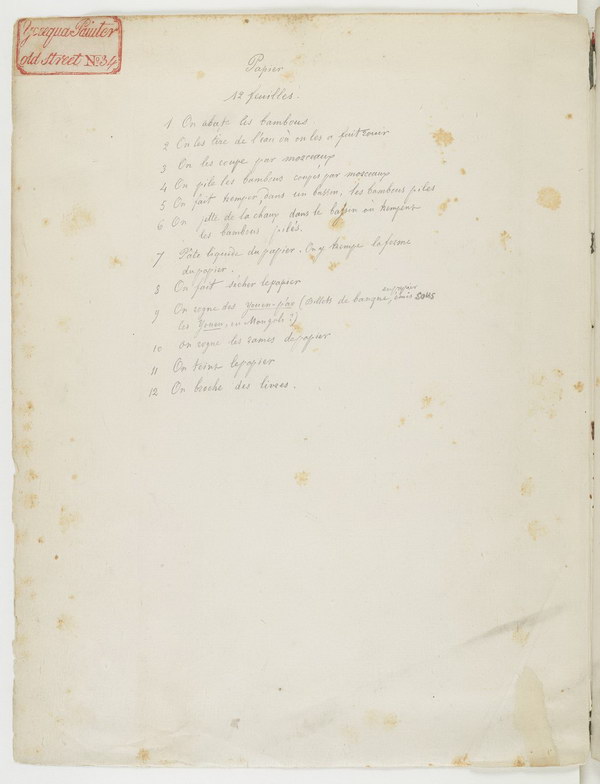 Yoeequa Painter
old street No 34
Papier
12 feuilles.
1 On abat les bambous
2 On les tire de l'eau où on les a fait rouir
3 On les coupe par morceaux
4 On pile les bambous coupés par morceaux
5 On fait tremper, dans un bassin, les bambous pilés
6 On jette de la chaux dans le bassin où trempent
les bambous pilés.
7 Pâte liquide du papier. On y trempe la forme
du papier.
8 On fait sécher le papier
9 On rogne des Youen-pao (Billets de banque, en papier, émis sous
les Youen, ou Mongols ?)
10 On rogne les rames de papier
11 On teint le papier
12 On broche des livres.